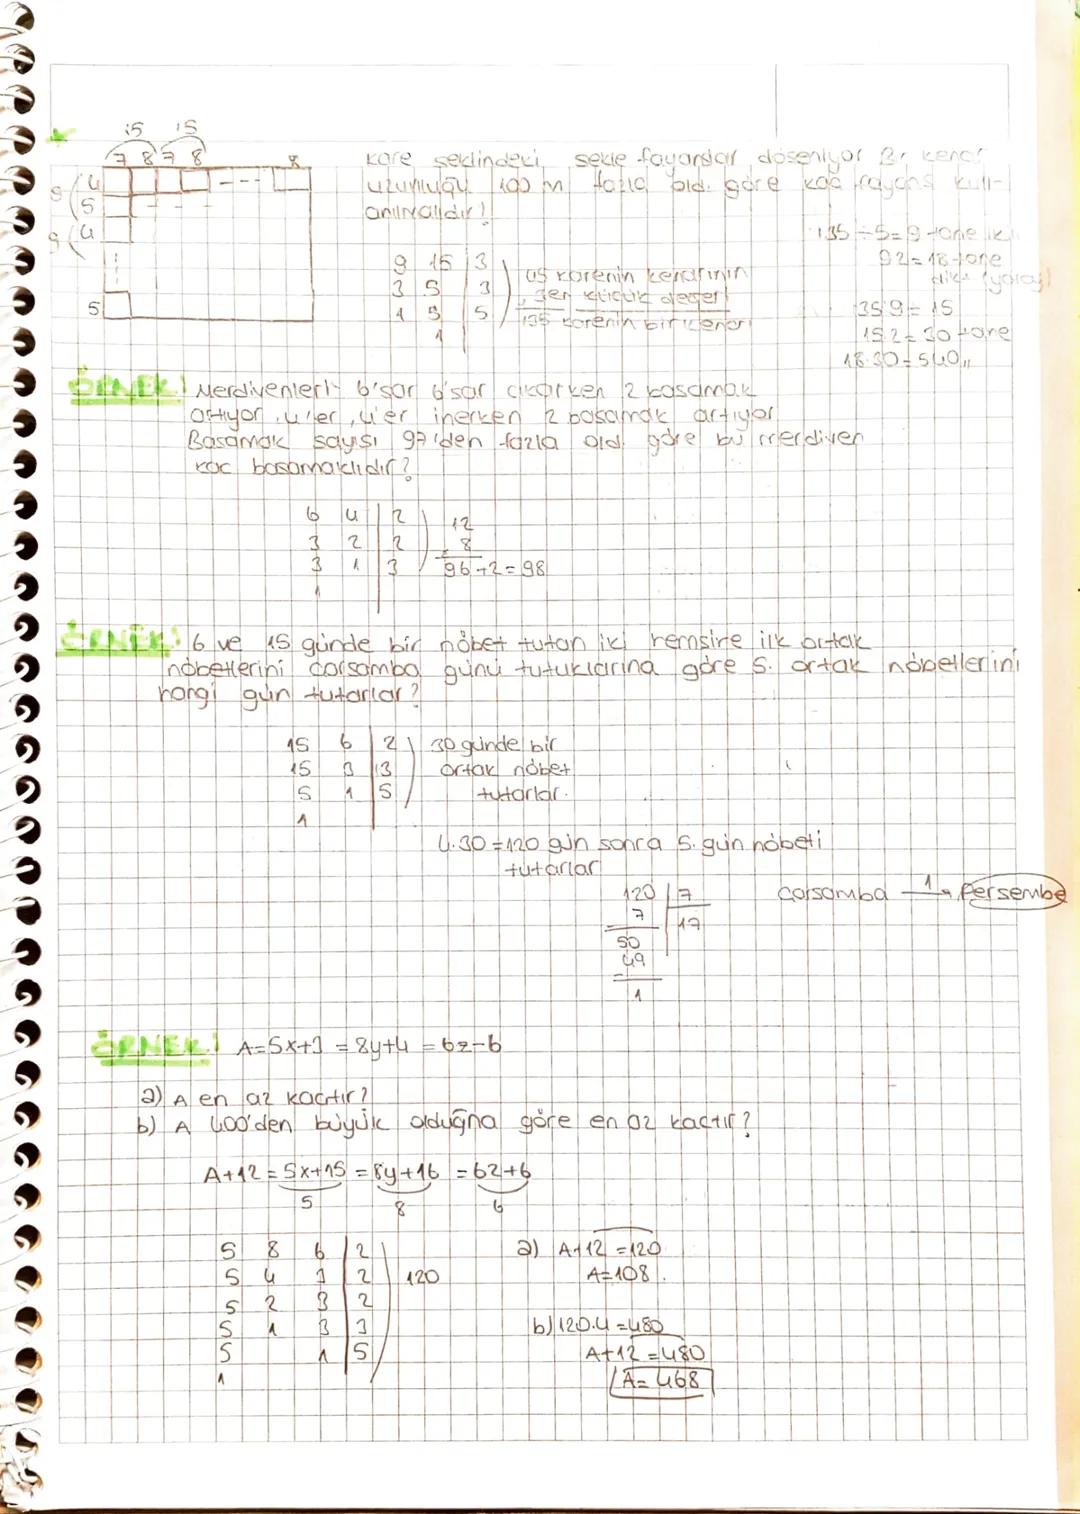 15 15
7 8 7 8 8
9 4
5
9 4
5
Kare şeklindeki şekle fayanslar döşeniyor Bir kenar
uzunluğu 100 m fazla old. göre kaç fayans kull-
anılmalıdır!
9 15 3
3 5 3
1 5 5
1
karenin kenarının
en küçük değeri
135 karenin bir kenarı
135 ÷ 5 = 9 tane iki
9.2 = 18 tane
135 9 = 15
15.2 = 30 tane
18.30 = 540,,
ÖRNEK! Merdivenleri 6'şar 6'şar çıkarken 2 basamak
artıyor. 4'er, 4'er inerken 2 basamak artıyor
Basamak sayısı 97'den fazla old. göre bu merdiven
kaç basamaklıdır?
6 4 2 12
3 2 2 8
3 1 3 96+2=98
1
ÖRNEK! 6 ve 15 günde bir nöbet tutan iki hemşire ilk ortak
nöbetlerini çarşamba günü tutuklarına göre 5. ortak nöbetlerini
hangi gün tutarlar?
15 6 2 30 günde bir
15 3 3 ortak nöbet
5 1 5 tutarlar.
1
4.30=120 gün sonra 5. gün nöbeti
tutarlar
120 7 çarşamba 1 Perşembe
7 17
50
49
1
ÖRNEK! A=5x+3 = 8y+4 = 6z-6
a) A en az kaçtır?
b) A 400'den büyük olduğna göre en az kaçtır?
A+12 = 5x+15 = 8y+16 = 6z+6
5 8 6
5 8 6 2
5 4 3 2 120
5 2 3 2
5 1 3 3
5 1 5
1
a) A+12 = 120
A=108.
b) 120.4 = 480
A+12 = 480
A= 468